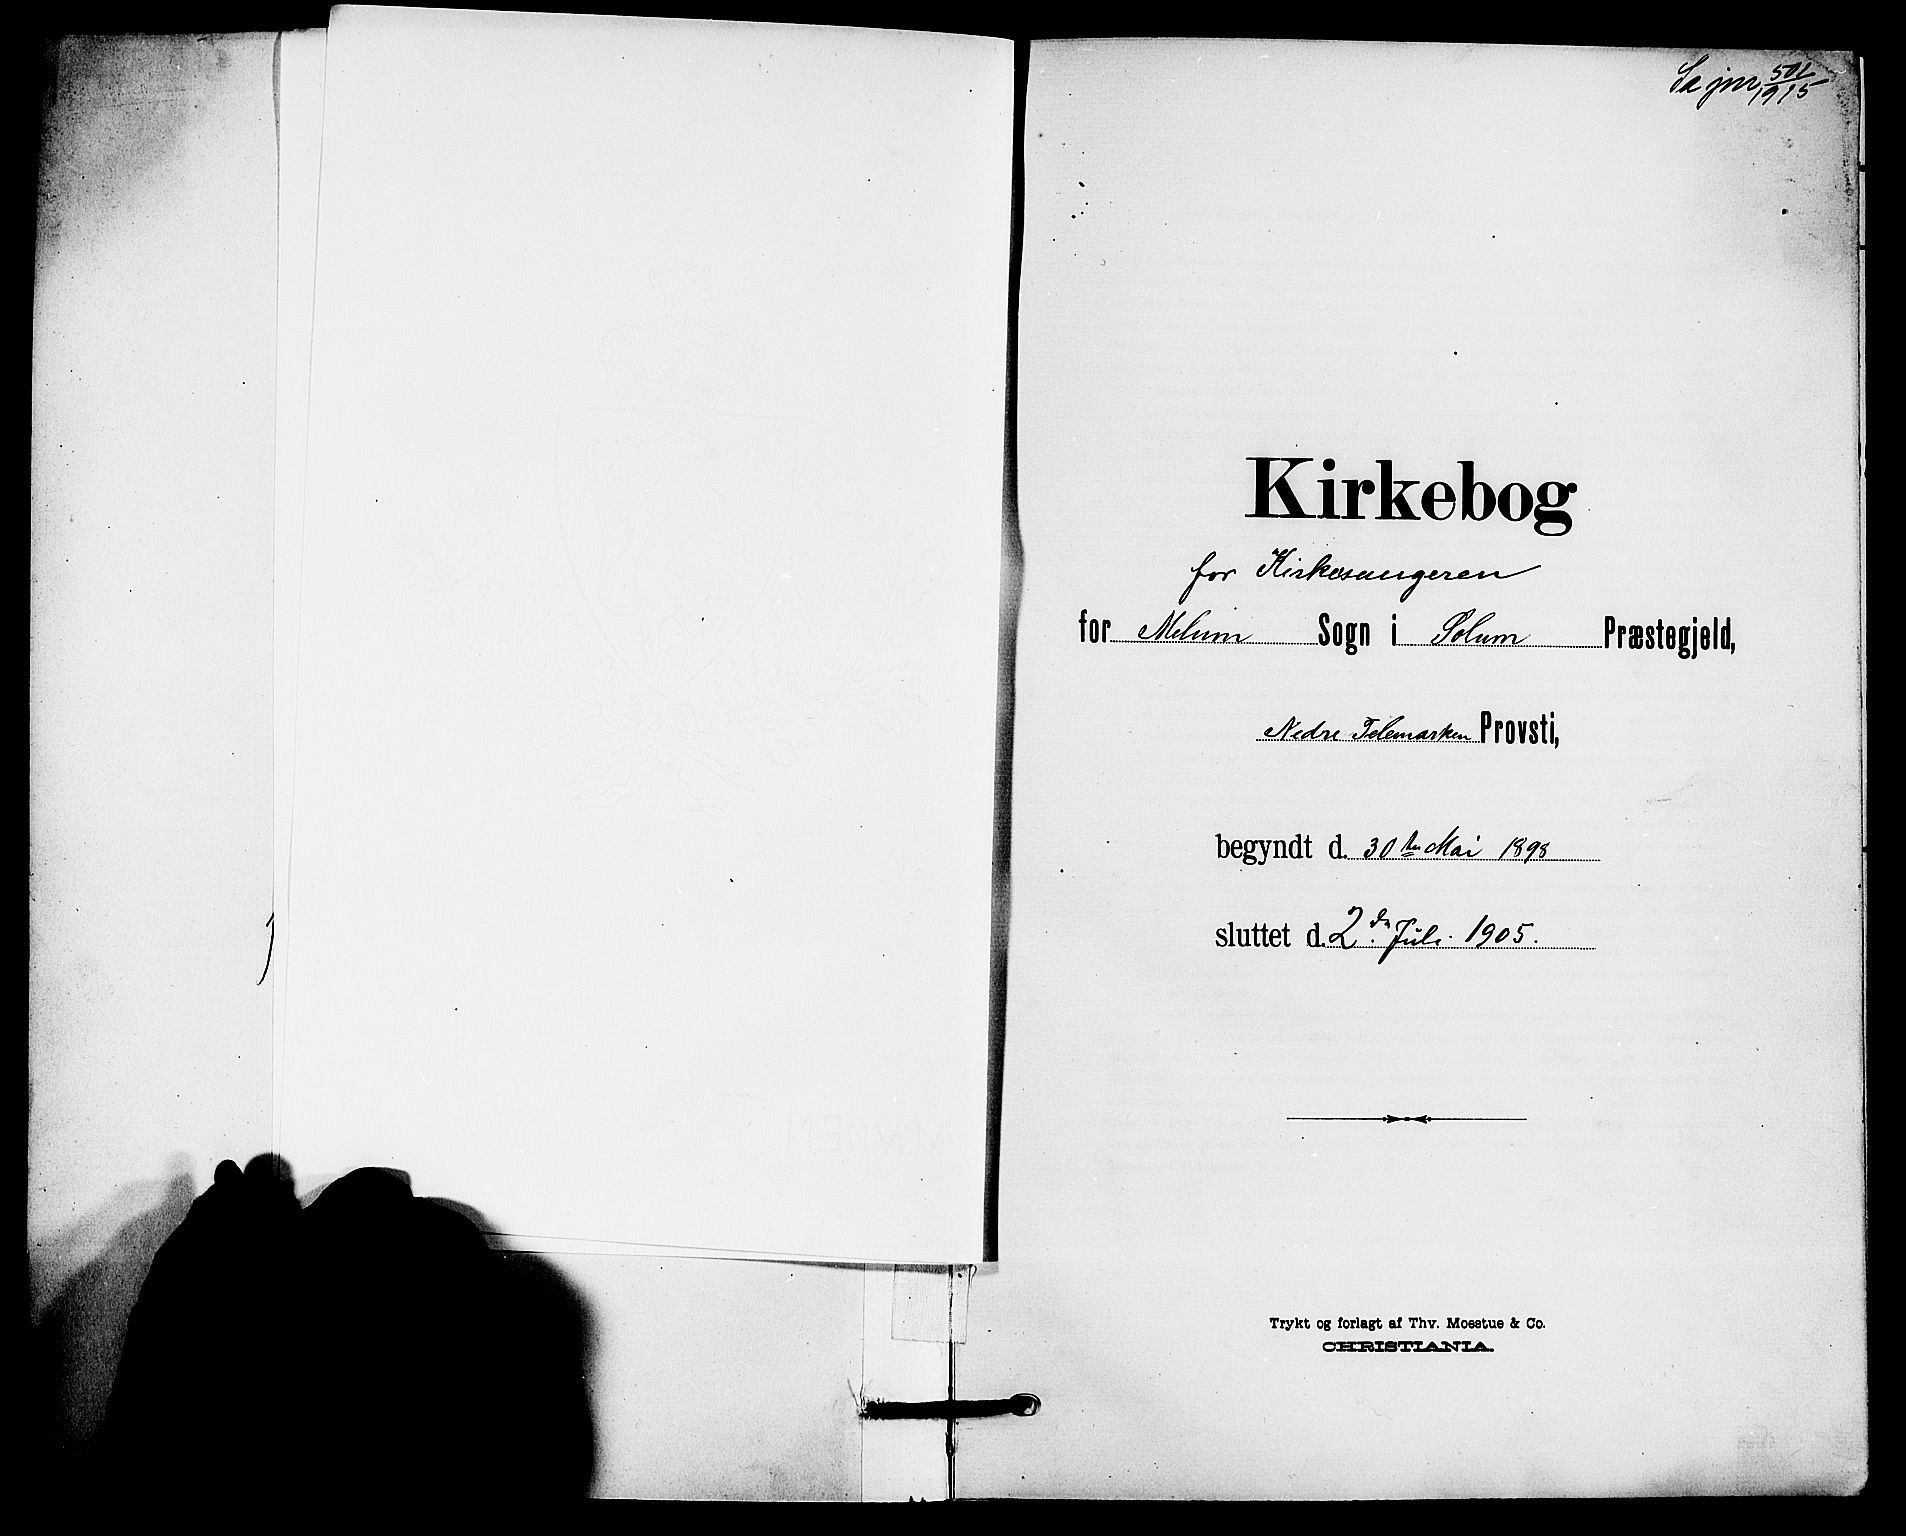 Sa jnr 501/1915
Kirkebog
for Kirkesangeren
for Melum Sogn i Solum Præstegjeld,
Nedre Telemarken Provsti,
begyndt d. 30te Mai 1898
sluttet d. 2den Juli 1905.
Trykt og forlagt af Thv. Moestue & Co.
CHRISTIANIA.